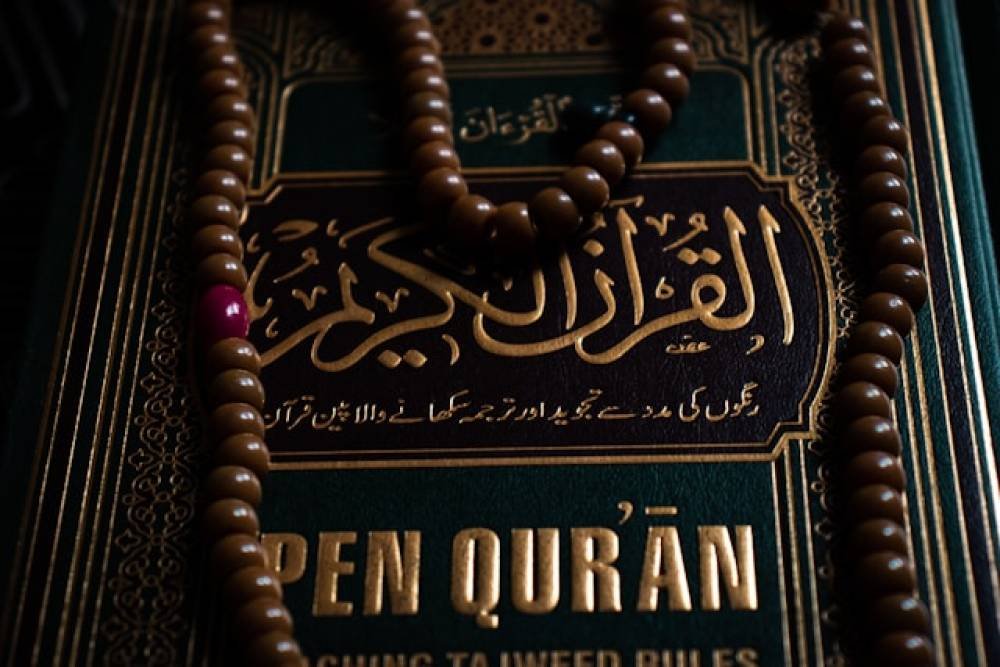 القرءان
القرآن الكريم
رنگوں کی مدد سے تجوید اور ترجمہ سکھانے والا پین قرآن
PEN QUR'ĀN
TAJWEED RULES